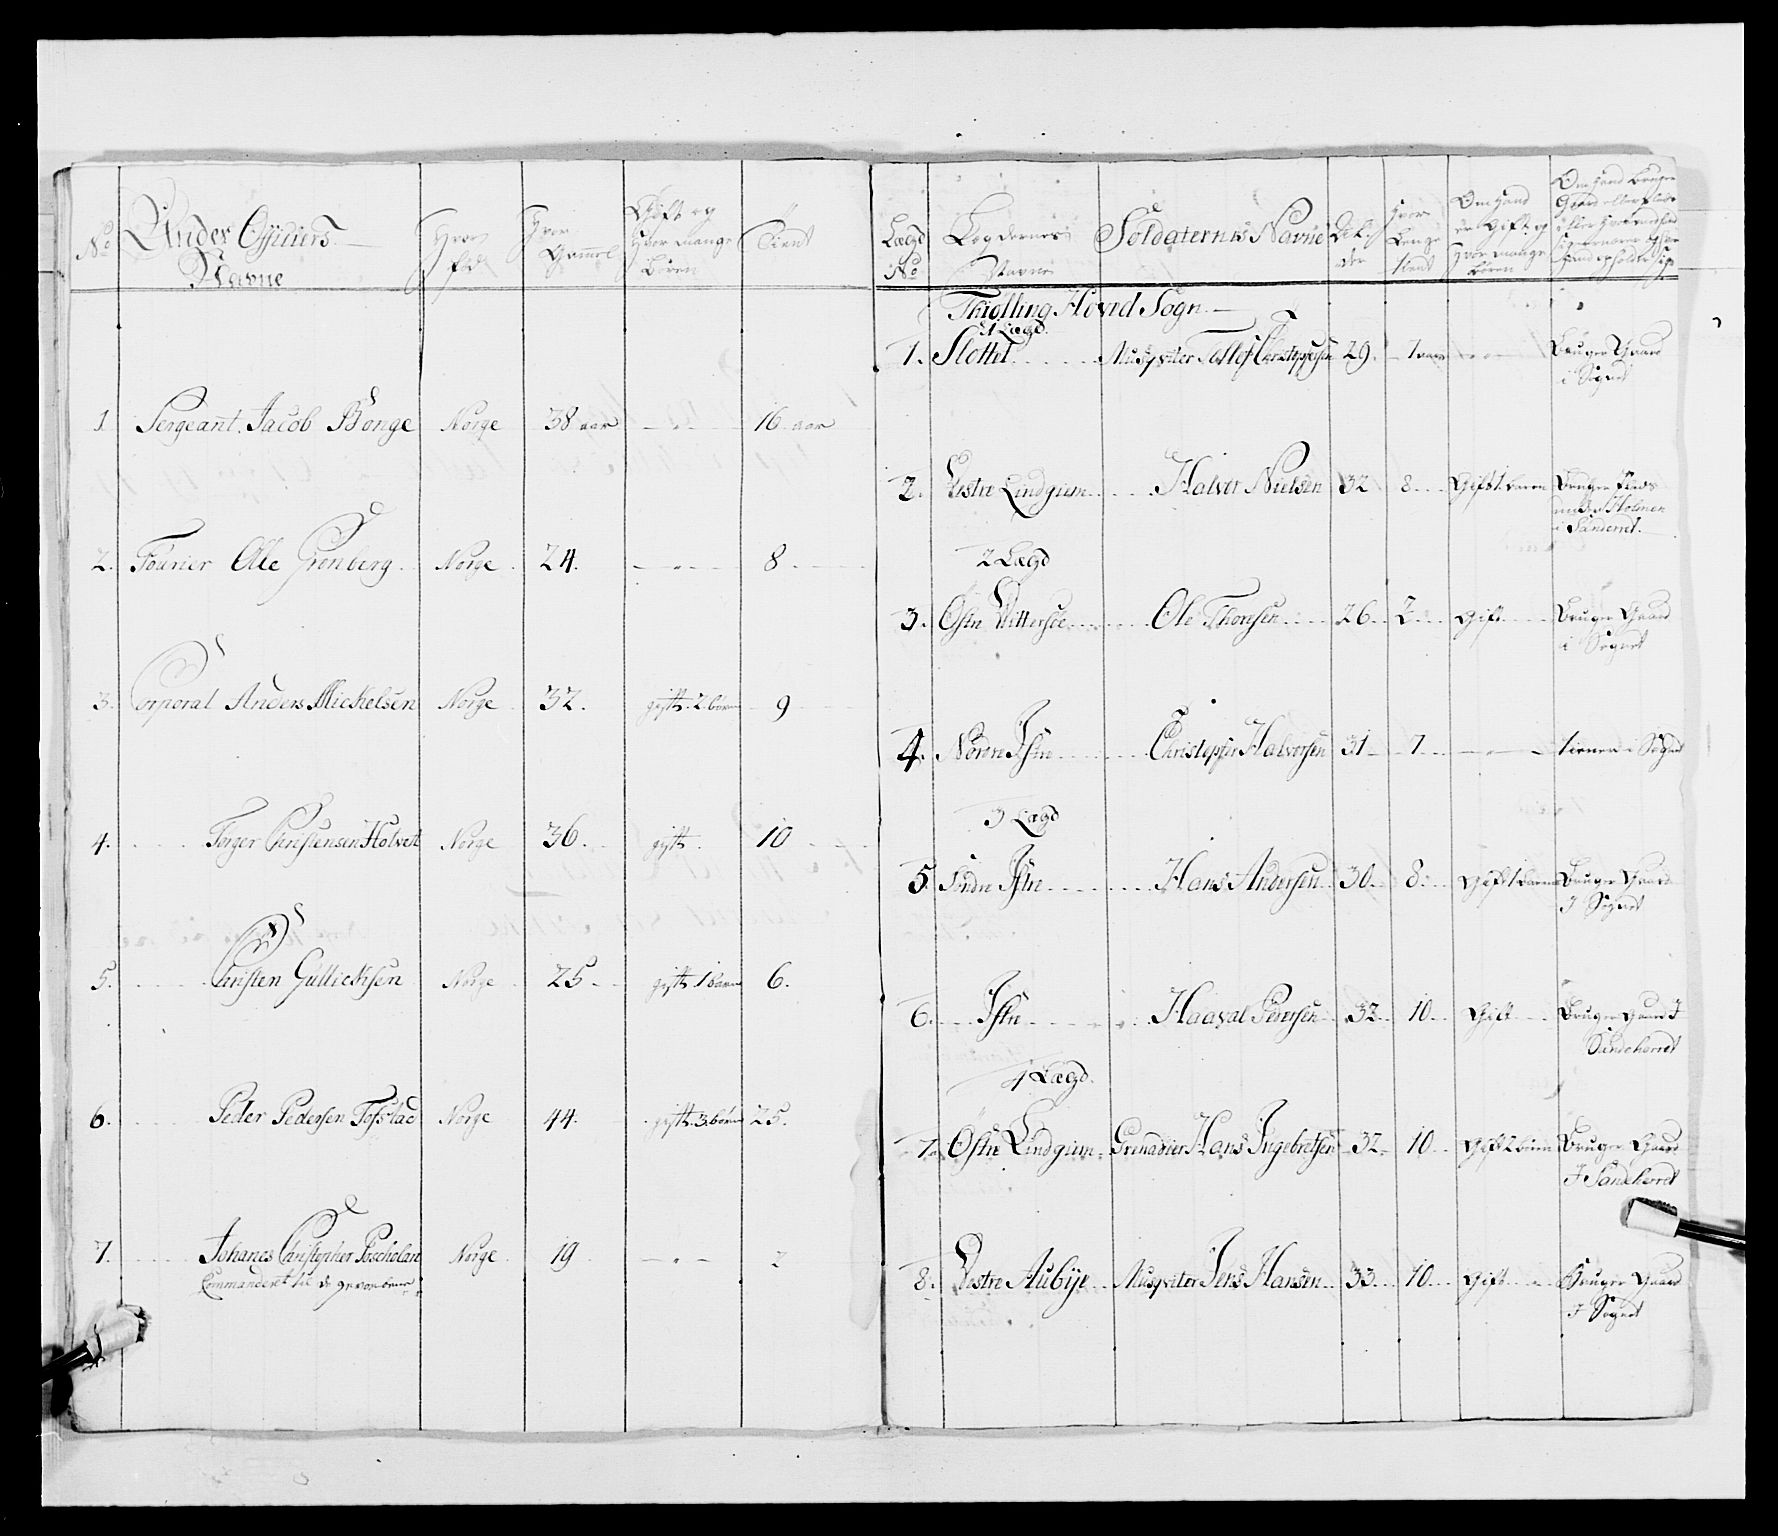 No Under Officiers Navne Hvor fød Hvor Gammel Gift og Hvor mange Børen Tient
1. Sergeant Jacob Bonge Norge 38 aar 16 aar
2. Fourier Olle Gronberg Norge 24. 8
3. Corporal Anders Mickelsen Norge 32. gift 2 børn 9
4. Torger Christensen Holvet Norge 36 gift 10
5. Christen Gullicksen Norge 25 gift 1 barn 6.
6. Peder Pedersen Tofstad Norge 44 gift 3 børn 25.
7. Johanes Christopher Norge 19 2
Commanderet til de
Lægd No Lægdernes Navne Soldaternes Navne Alder Hvor Lenge tient Om Hand er Gift og Hvor mange Børen Om Hand Bruger Gaard eller Plads
Thiølling Hovid Sogn
1 Lægd.
1. Slottet Musqviter Tollef Christophersen 29. 7 aar Bruger Gaard
i Sognet
2. Vestre Lindgium Halvor Nielsen 32 8 Gift 1 barn Bruger Plads
under Holmen
i Sanderret.
2 Lægd
3. Østre Vittersøe Ole Thorsen 26 2 Gift Bruger Gaard
i Sognet
4. Nordre Istre Christopher Halvorsen 31 7 tiener i Sognet
3 Lægd
5 Søndre Istre Hans Andersen 30 8 Gift 1 barn Bruger Gaard
I Sognet
6. Istre Haaval Pedersen 32 10 Gift Bruger Gaard I
Sandeherret
4 Lægd.
7. Østre Lindgium Grenadier Hans Ingebretsen 32 10 Gift 2 børen Bruger Gaard
I Sandeherret
8. Vestre Aubÿe Musqviter Jens Hansen 33 10 Gift Bruger Gaard
I Sognet